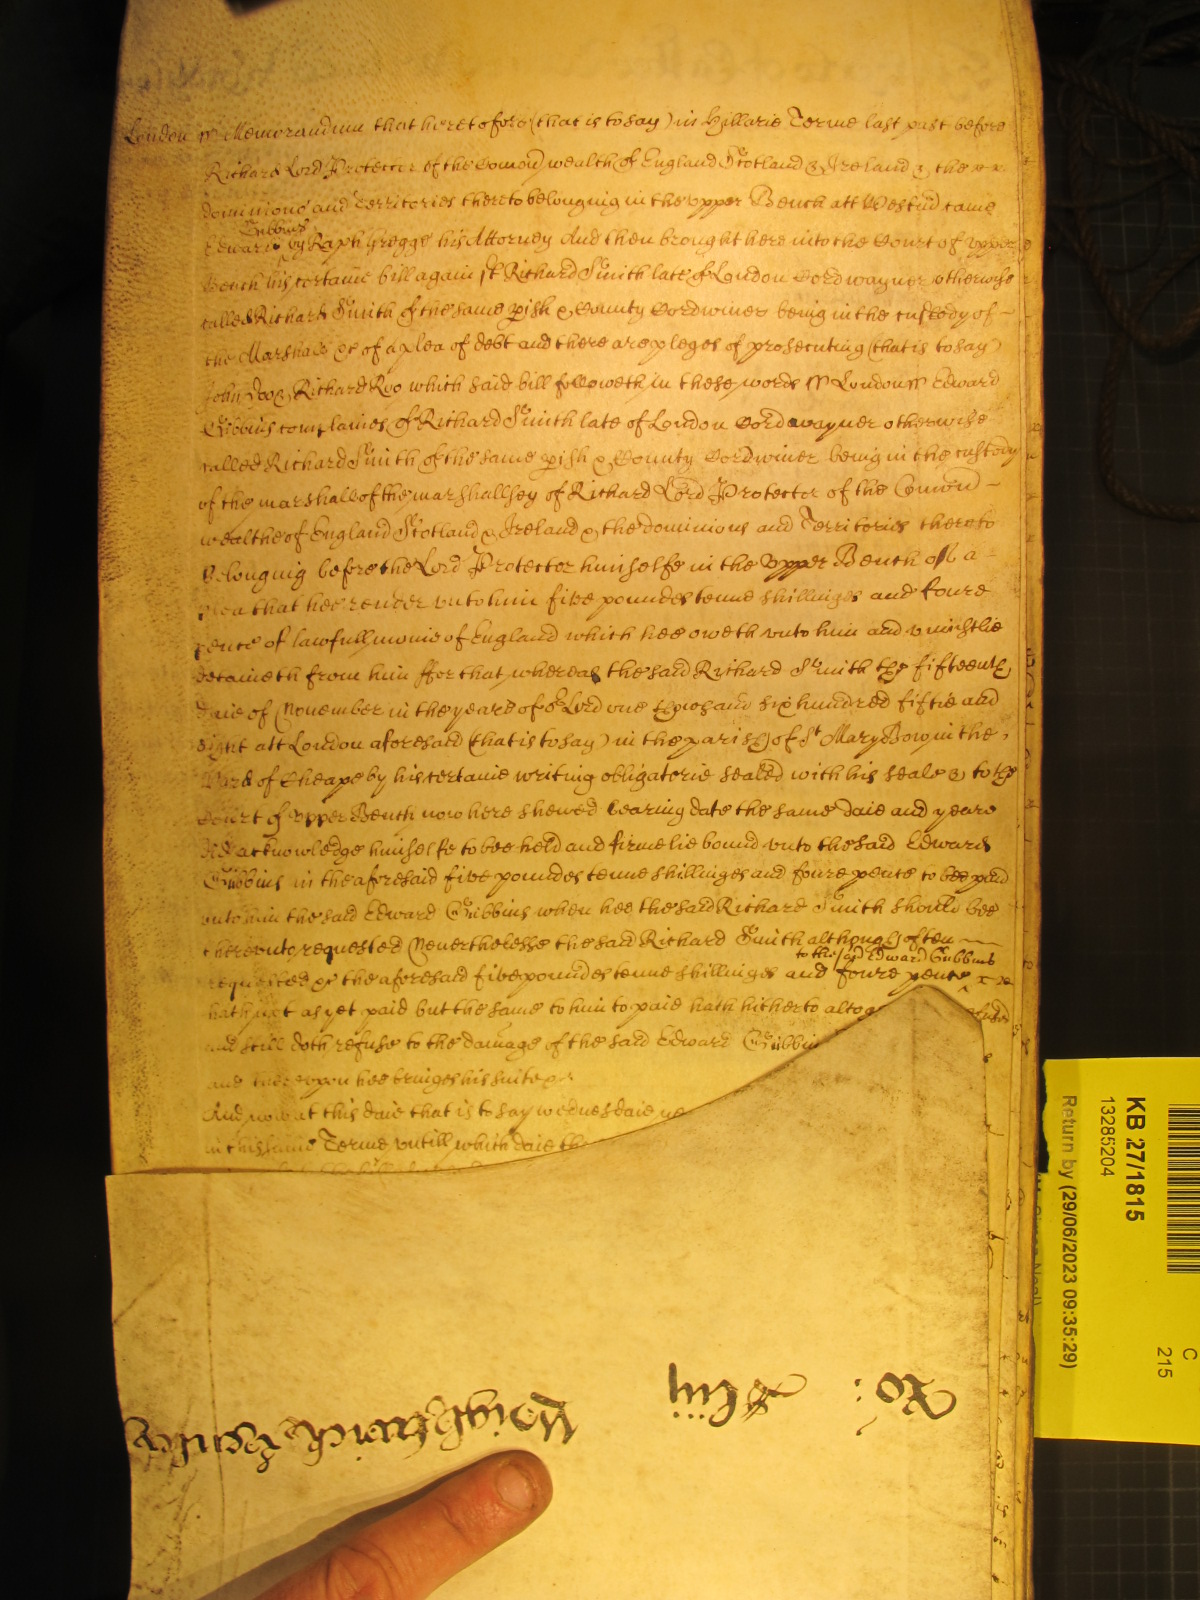 London ss Memorandum that heretofore (that is to say) in Hillarie Terme last past before
Richard Lord Protector of the Comon wealth of England Scotland & Ireland & the
dominions and Territories thereto belonging in the upper Bench att Westm came
Gibbins
Edward by Raph Gregge his Attorney And then brought here into the Court of upper
Bench his certaine bill against Richard Smith late of London Cordwayner otherwise
called Richard Smith of the same pish & County Cordwiner being in the custody of
the Marshall &c of a plea of debt and there are pleges of prosecuting (that is to say)
John Doo & Richard Roo which said bill followeth in these words ss London ss Edward
Gibbins complaines of Richard Smith late of London Cordwayner otherwise
called Richard Smith of the same pish & County Cordwiner being in the custody
of the marshall of the marshallsey of Richard Lord Protector of the Comon
wealthe of England Scotland & Ireland & the dominions and Territories thereto
belonging before the Lord Protector himselfe in the upper Bench of a
plea that hee render unto him five poundes tenne shillinges and foure
pence of lawfull monie of England which hee oweth unto him and uniustlie
detaineth from him ffor that whereas the said Richard Smith the fifteenth
daie of November in the yeare of or Lord one thousand six hundred fiftie and
eight att London aforesaid (that is to say) in the parish of St Mary Bow in the
Ward of Cheape by his certaine writing obligatorie sealed with his seale & to the
Court of upper Bench now here shewed bearing date the same daie and yeare
did acknowledge himselfe to bee held and firmelie bound unto the said Edward
Gibbins in the aforesaid five poundes tenne shillinges and foure pence to bee paid
unto him the said Edward Gibbins when hee the said Richard Smith should bee
thereunto requested Neverthelesse the said Richard Smith although often
to the said Edward Gibbins
requested &c the aforesaid five poundes tenne shillinges and foure pence
hath not as yet paid but the same to him to paid hath hitherto altog
and still doth refuse to the damage of the said Edward Gibbins
and thereupon hee bringes his suite &c
And now at this daie that is to say wednesdaie
in this same Terme untill which daie the
Ro:
KB 27/1815
13285204
Return by (29/06/2023 09:35:29)
C
215